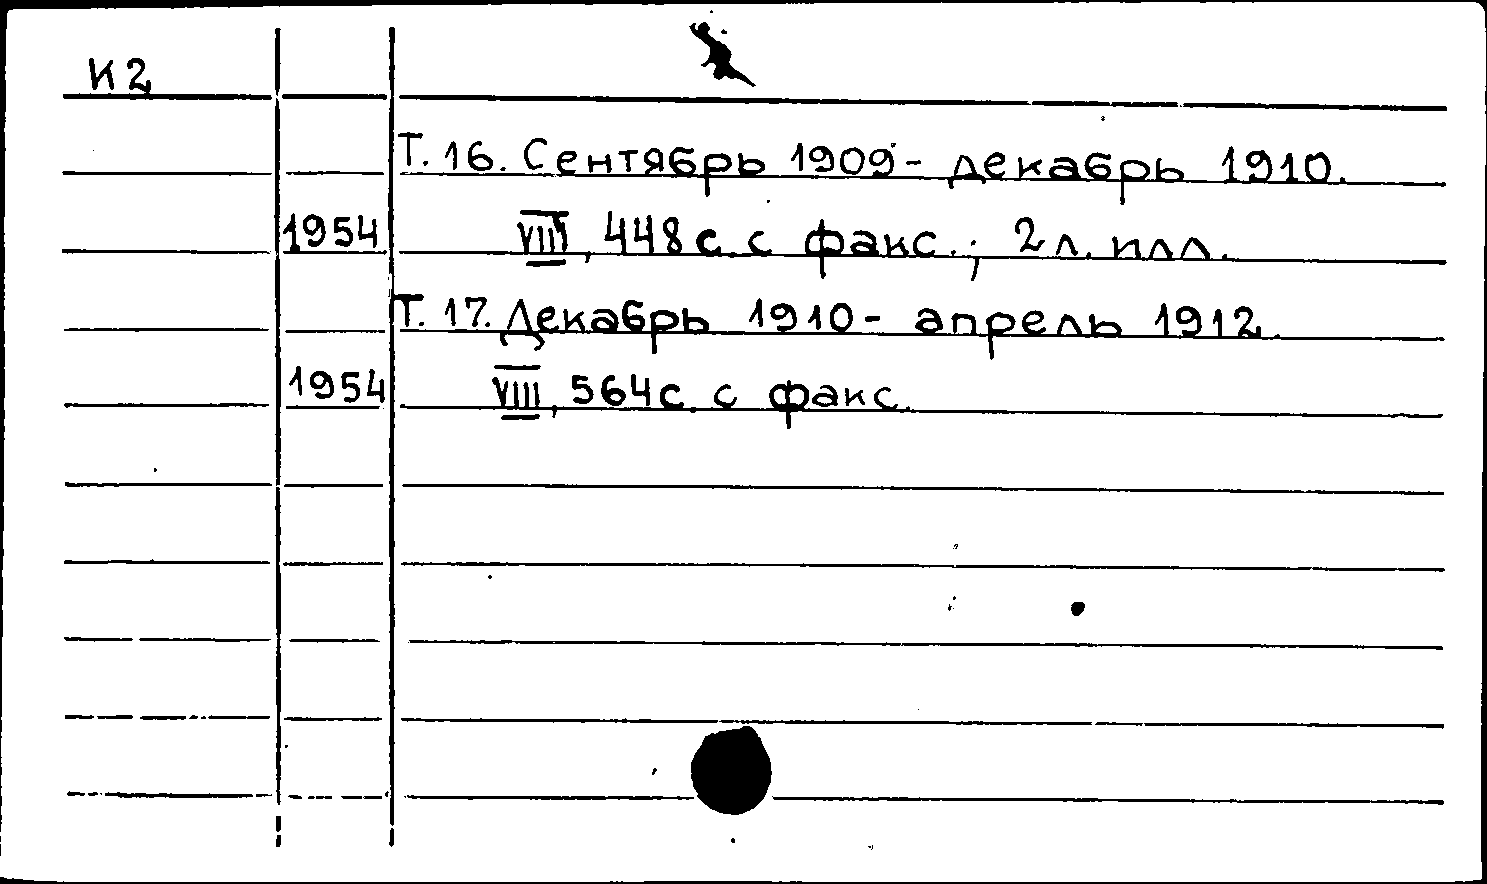 К2
Т. 16. Сентябрь 1909 - декабрь 1910.
1954 VIII, 448 с. с факс.; 2 л. илл.
Т. 17. Декабрь 1910 - апрель 1912.
1954 VIII, 564 с. с факс.